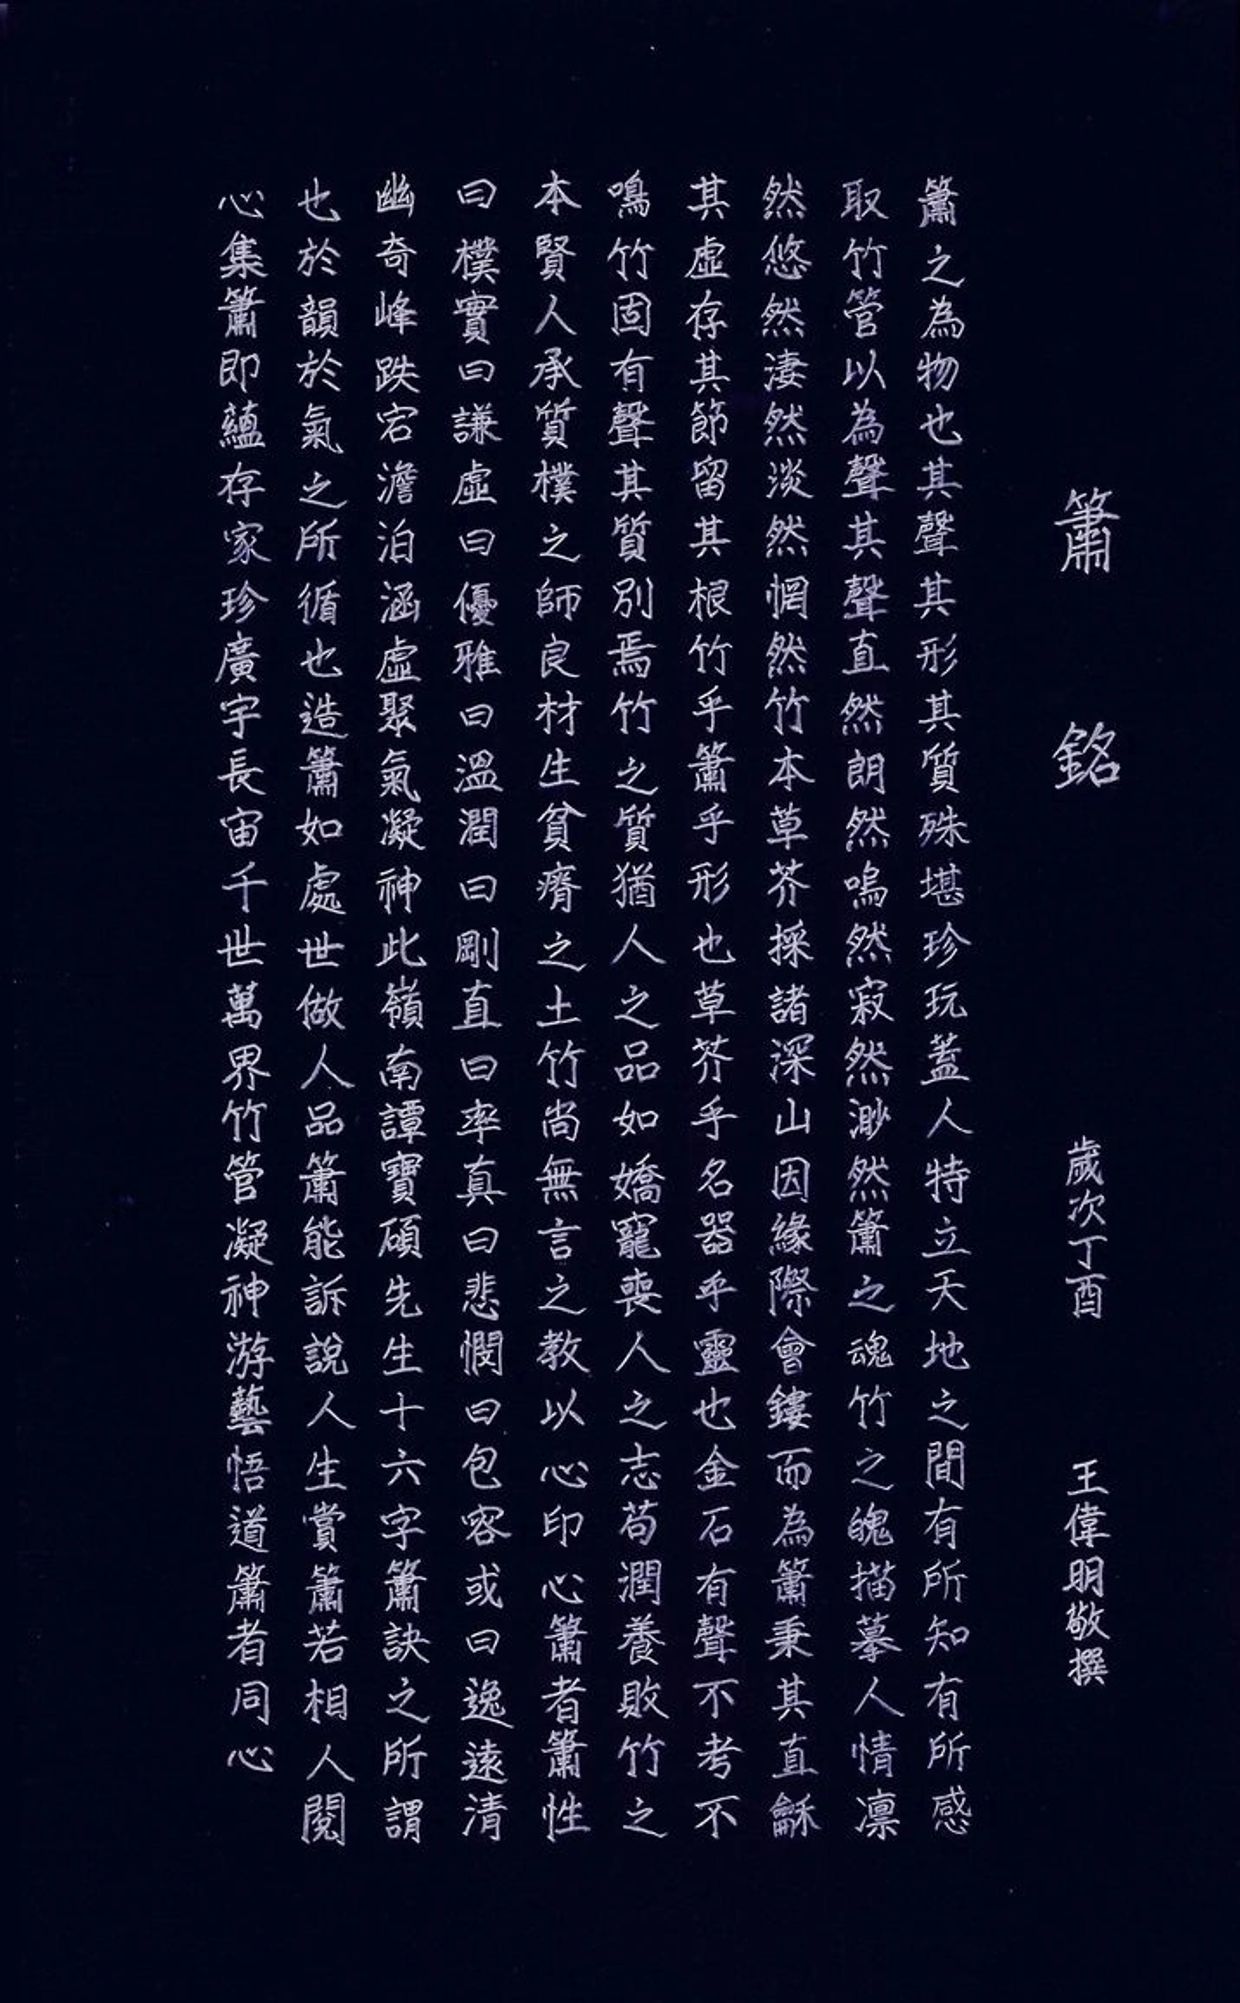 簫銘
歲次丁酉 王偉明敬撰
簫之為物也其聲其形其質殊堪珍玩蓋人特立天地之間有所知有所感
取竹管以為聲其聲直然朗然嗚然寂然渺然簫之魂竹之魄描摹人情凛
然悠然淒然淡然惘然竹本草芥採諸深山因緣際會鏤而為簫秉其直龢
其虛存其節留其根竹乎簫乎形也草芥乎名器乎靈也金石有聲不考不
鳴竹固有聲其質別焉竹之質猶人之品如嬌寵喪人之志苟潤養敗竹之
本賢人承質樸之師良材生貧瘠之土竹尚無言之教以心印心簫者簫性
曰樸實曰謙虛曰優雅曰溫潤曰剛直曰率真曰悲憫曰包容或曰逸遠清
幽奇峰跌宕澹泊涵虛聚氣凝神此嶺南譚寶碩先生十六字簫訣之所謂
也於韻於氣之所循也造簫如處世做人品簫能訴說人生賞簫若相人閱
心集簫即蘊存家珍廣宇長宙千世萬界竹管凝神游藝悟道簫者同心